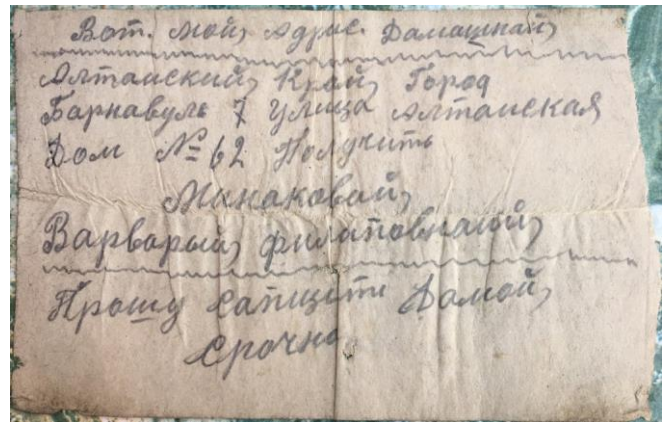 Вот. мой, адрис. Дамашнай,
Алтаиский, Край, Город
Барнавуль 7 улица Алтаиская
Дом № 62 Получить
Минаковай,
Варварый, филиповнаий,
Прошу сапщити Дамой,
Срочно.